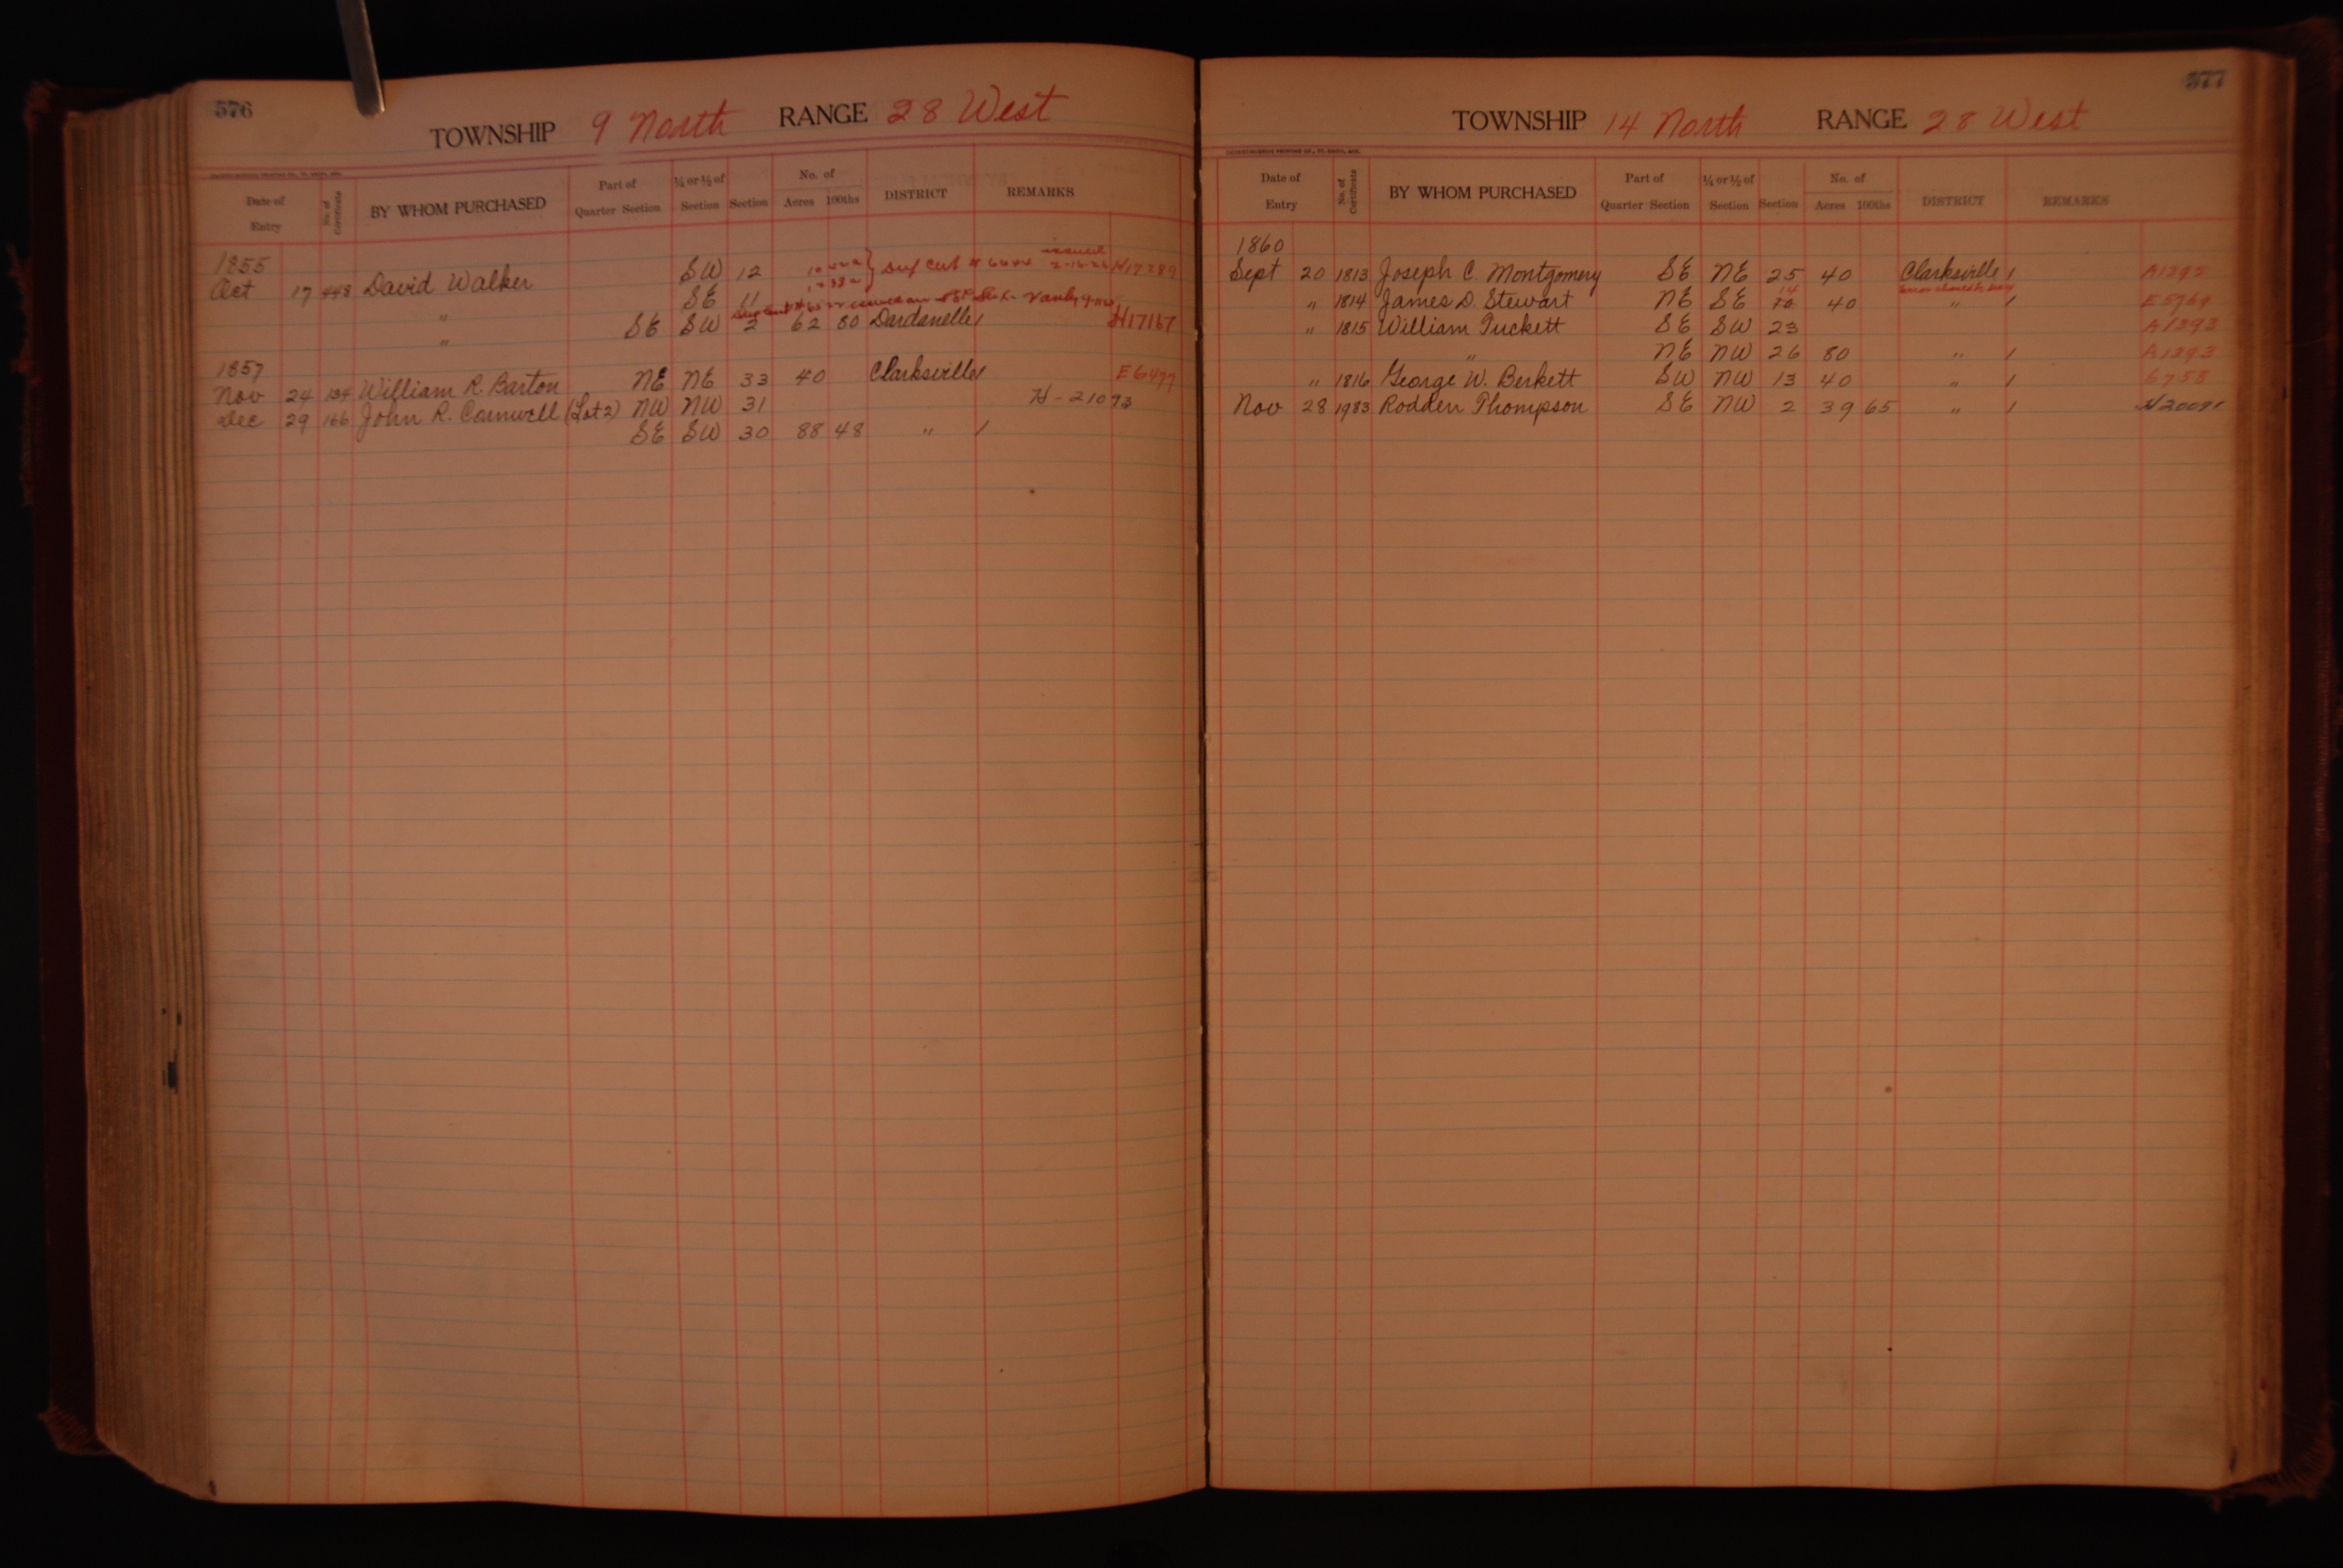 576
TOWNSHIP 9 North RANGE 28 West
Date of Entry No. of Certificate BY WHOM PURCHASED Part of Quarter Section ¼ or ½ of Section Section No. of Acres 100ths DISTRICT REMARKS
1855
issued
Oct 17 448 David Walker SW 12 H17289
" SE 11
" SE SW 2 62 80 Dardanelle / H17167
1857
Nov 24 134 William R. Barton NE NE 33 40 Clarksville / E6477
Dec 29 166 John R. Carnwell (Lot 2) NW NW 31 H-21073
SE SW 30 88 48 " /
577
TOWNSHIP 14 North RANGE 28 West
Date of Entry No. of Certificate BY WHOM PURCHASED Part of Quarter Section ¼ or ½ of Section Section No. of Acres 100ths DISTRICT REMARKS
1860
Sept 20 1813 Joseph C. Montgomery SE NE 25 40 Clarksville / A1292
14
" 1814 James D. Stewart NE SE 40 " / E5769
" 1815 William Tuckett SE SW 23 A1293
" NE NW 26 80 " / A1293
" 1816 George W. Berkett SW NW 13 40 " / 6753
Nov 28 1983 Rodden Thompson SE NW 2 39 65 " / H20091